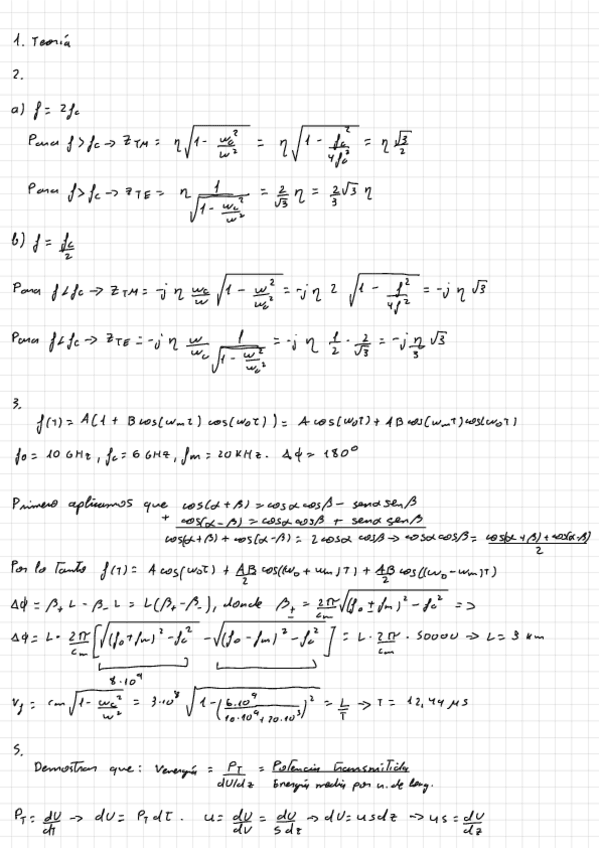 1. Teoría
2.
a) f = 2fc
Para f > fc → Z TM = η √(1 - ωc²/ω²) = η √(1 - fc²/4fc²) = η √3/2
Para f > fc → Z TE = η 1/√(1 - ωc²/ω²) = 2/√3 η = 2/3 √3 η
b) f = fc/2
Para f < fc → Z TM = -j η ωc/ω √(1 - ω²/ωc²) = -j η 2 √(1 - f²/4f²) = -j η √3
Para f < fc → Z TE = -j η ω/ωc 1/√(1 - ω²/ωc²) = -j η 1/2 · 2/√3 = -j η/3 √3
3.
f(T) = A(1 + B cos(ωm τ) cos(ω0 τ)) = A cos(ω0 T) + AB cos(ωm T) cos(ω0 T)
f0 = 10 GHz, fc = 6 GHz, fm = 20 KHz. Δϕ = 180°
Primero aplicamos que cos(α + β) = cosα cosβ - senα senβ
+ cos(α - β) = cosα cosβ + senα senβ
cos(α + β) + cos(α - β) = 2 cosα cosβ → cosα cosβ = cos(α + β) + cos(α - β)/2
Por lo tanto f(T) = A cos(ω0 T) + AB/2 cos((ω0 + ωm)T) + AB/2 cos((ω0 - ωm)T)
Δϕ = β+ L - β- L = L(β+ - β-), donde β± = 2π/cm √((f0 ± fm)² - fc²) =>
Δϕ = L · 2π/cm [√((f0 + fm)² - fc²) - √((f0 - fm)² - fc²)] = L · 2π/cm · 50000 → L = 3 km
8·10⁹
Vg = cm √(1 - ωc²/ω²) = 3·10⁸ √(1 - (6·10⁹/10·10⁹ + 20·10³)²) = L/T → T = 12,44 μs
5.
Demostrar que: Venergía = PT/dU/dz = Potencia transmitida/Energía media por u. de long.
PT = dU/dT → dU = PT dT. u = dU/dV = dU/S dz → dU = u s dz → u s = dU/dz